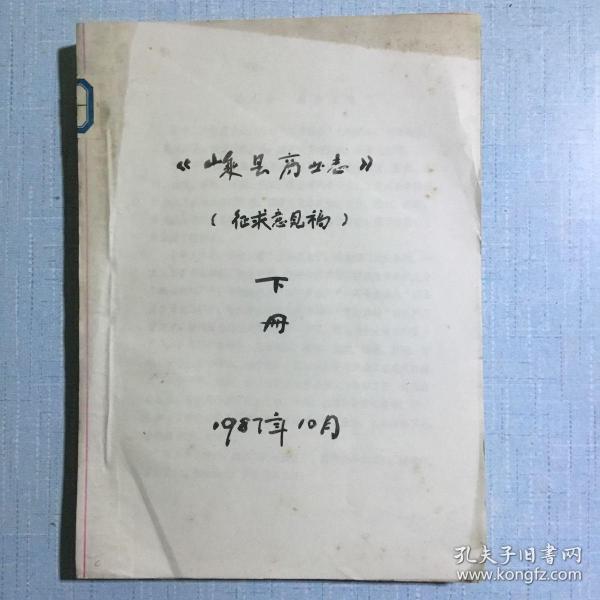 《嵊县商业志》
(征求意见稿)
下
册
1987年10月
孔夫子旧书网
www.kongfz.com